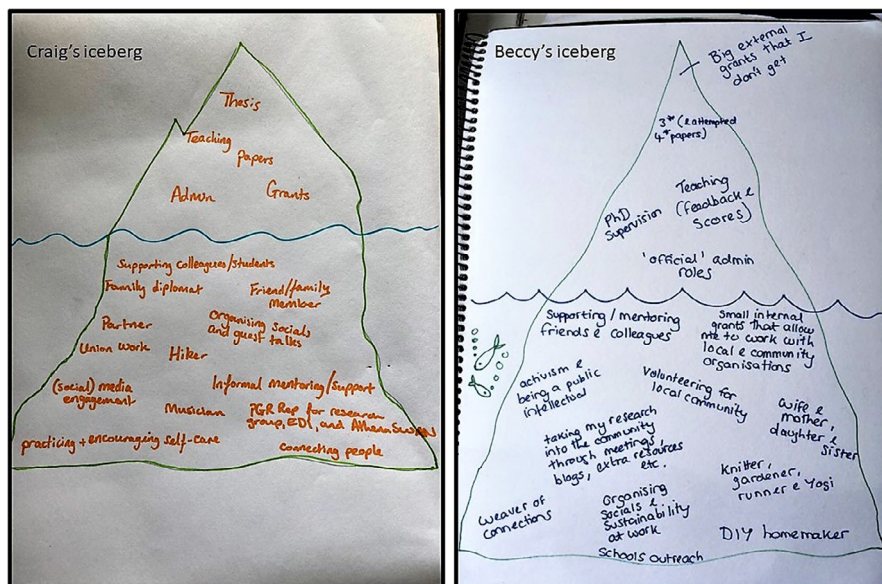 Craig's iceberg
Thesis
Teaching
Papers
Admin
Grants
Supporting colleagues/students
Family diplomat
Friend/family
member
Partner
Organising socials
and guest talks
Union work
Hiker
(social) media
engagement
Informal mentoring/support
Musician
PGR Rep for research
group, EDI, and Athena SWAN
practicing + encouraging self-care
connecting people
Beccy's iceberg
Big external
grants that I
don't get
3* (& attempted
4* papers)
PhD
Supervision
Teaching
(feedback &
scores)
'official' admin
roles
Supporting / mentoring
friends & colleagues
Small internal
grants that allow
me to work with
local & community
organisations
activism &
being a public
intellectual
Volunteering for
local community
wife &
mother,
daughter &
sister
taking my research
into the community
through meetings,
blogs, extra resources
etc.
Knitter,
gardener,
runner & Yogi
weaver of
connections
Organising
socials &
sustainability
at work
DIY homemaker
Schools outreach